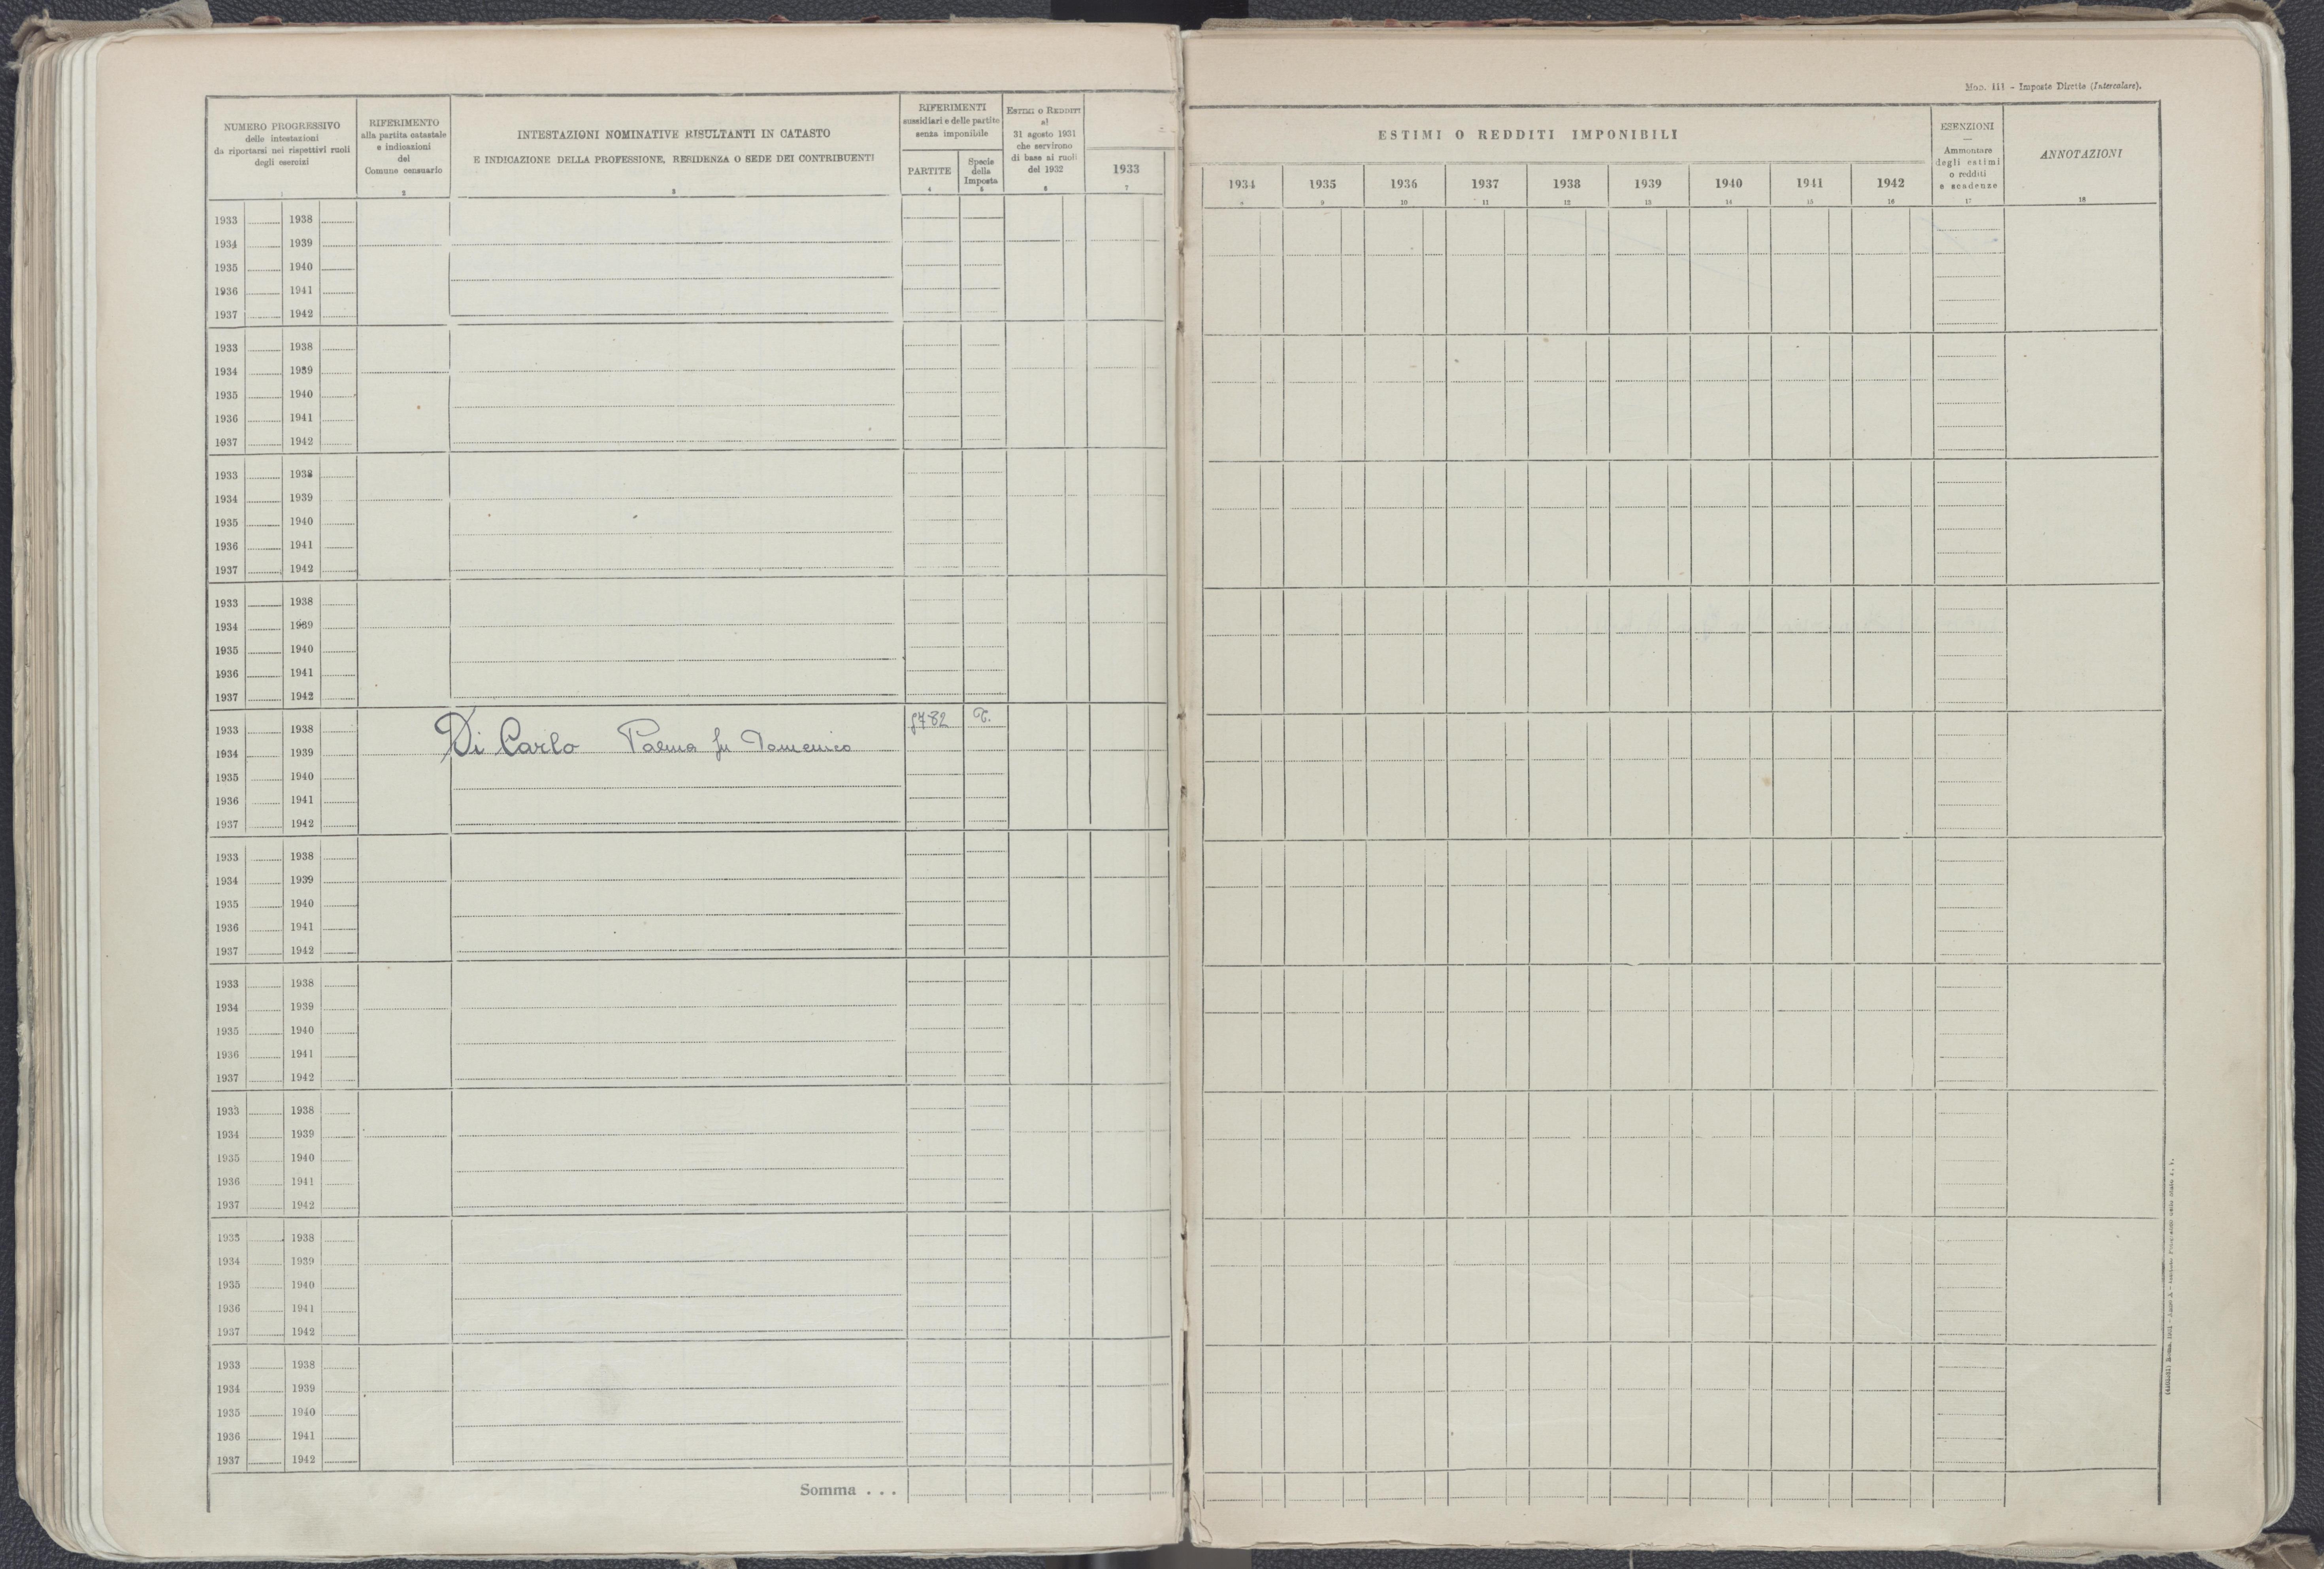 Mod. 111 - Imposte Dirette (Intercalare).
NUMERO PROGRESSIVO
delle intestazioni
da riportarsi nei rispettivi ruoli
degli esercizi
1
RIFERIMENTO
alla partita catastale
e indicazioni
del
Comune censuario
2
INTESTAZIONI NOMINATIVE RISULTANTI IN CATASTO
E INDICAZIONE DELLA PROFESSIONE, RESIDENZA O SEDE DEI CONTRIBUENTI
3
RIFERIMENTI
sussidiari e delle partite
senza imponibile
PARTITE
4
Specie
della
Imposta
5
ESTIMI O REDDITI
al
31 agosto 1931
che servirono
di base ai ruoli
del 1932
6
1933
7
ESTIMI O REDDITI IMPONIBILI
1934 1935 1936 1937 1938 1939 1940 1941 1942
8 9 10 11 12 13 14 15 16
ESENZIONI
—
Ammontare
degli estimi
o redditi
e scadenze
17
ANNOTAZIONI
18
1933 1938
1934 1939
1935 1940
1936 1941
1937 1942
1933 1938
1934 1939
1935 1940
1936 1941
1937 1942
1933 1938
1934 1939
1935 1940
1936 1941
1937 1942
1933 1938
1934 1939
1935 1940
1936 1941
1937 1942
1933 1938 T.
1934 1939 Di Carlo Palma fu Domenico
1935 1940
1936 1941
1937 1942
1933 1938
1934 1939
1935 1940
1936 1941
1937 1942
1933 1938
1934 1939
1935 1940
1936 1941
1937 1942
1933 1938
1934 1939
1935 1940
1936 1941
1937 1942
1933 1938
1934 1939
1935 1940
1936 1941
1937 1942
1933 1938
1934 1939
1935 1940
1936 1941
1937 1942
Somma . . .